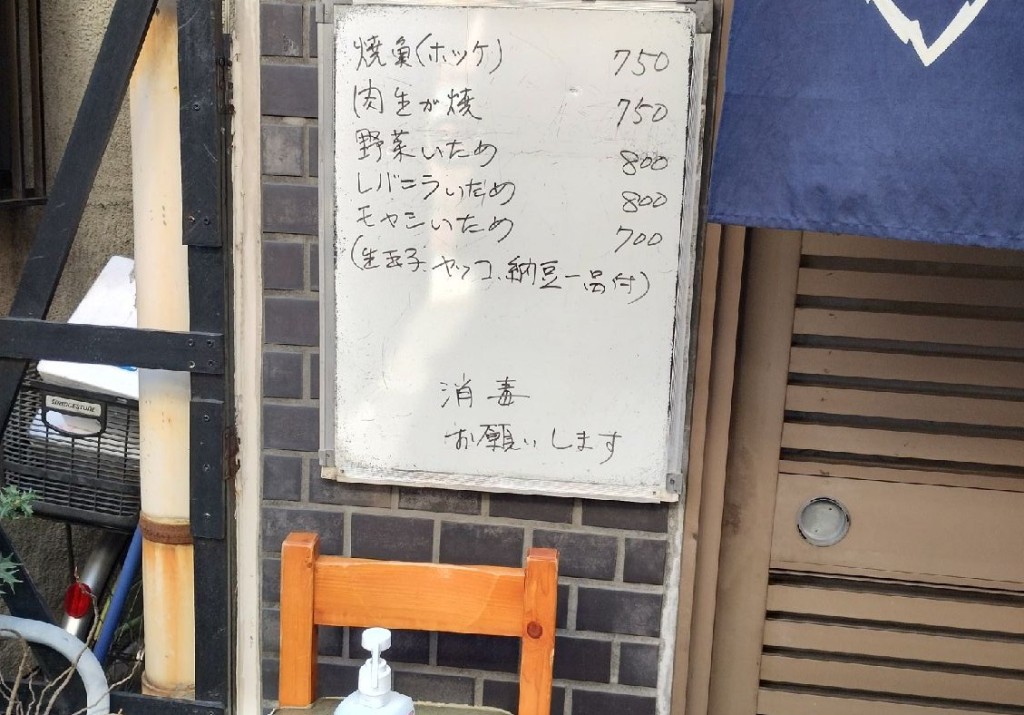 焼魚(ホッケ) 750
肉生が焼 750
野菜いため 800
レバニラいため 800
モヤシいため 700
(生玉子、ヤッコ、納豆一品付)
消毒
お願いします
BRIDGESTONE